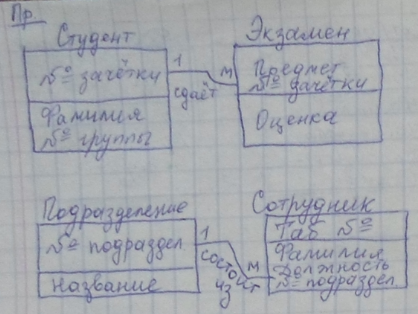 Пр.
Студент
№ зачётки
Фамилия
№ группы
1
сдаёт
М
Экзамен
Предмет
№ зачётки
Оценка
Подразделение
№ подраздел
Название
1
состоит
из
М
Сотрудник
Таб №
Фамилия
Должность
№ подраздел.